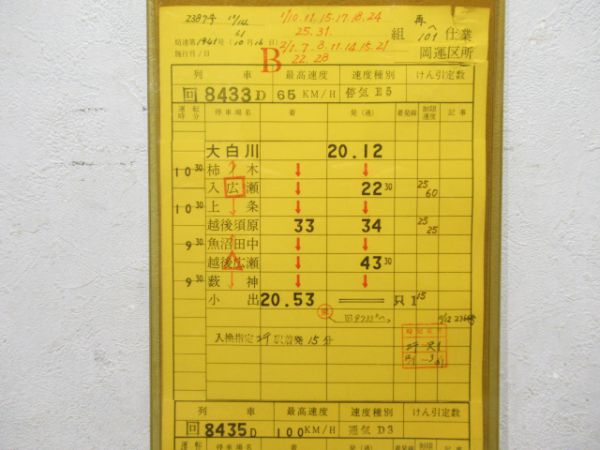 2387号
1/10.11.15.17.18.24
25.31.
2/1.7.8.11.14.15.21
22.28
B
組 再101 仕業
局達第1961号(61 10月16日)
施行月/日
岡運区所
列車 最高速度 速度種別 けん引定数
回 8433D 65 KM/H 停気E5
運転時分 停車場名 着 発(通) 着発線 制限速度 記事
大白川 20.12
10 30 柿ノ木 ↓ ↓
入広瀬 ↓ 22 30 25 60
10 30 上条 ↓ ↓
越後須原 33 34 25 25
9 30 魚沼田中 ↓ ↓
越後広瀬 ↓ 43 30
9 30 薮神 ↓ ↓
小出 20.53 只1 15
入換指定 駅着発15分
列車 最高速度 速度種別 けん引定数
回 8435D 100 KM/H 通気D3
運転 停車場名 着 発(通) 着発線 制限 記事